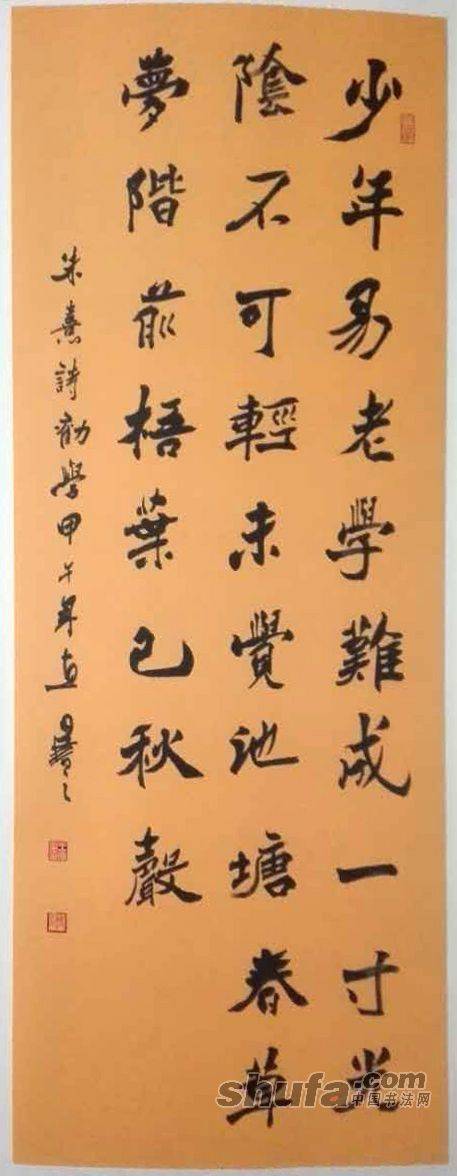 少年易老學難成一寸光
陰不可輕未覺池塘春草
夢階前梧葉已秋聲
朱熹詩勸學甲午年
shufa.com
中国书法网